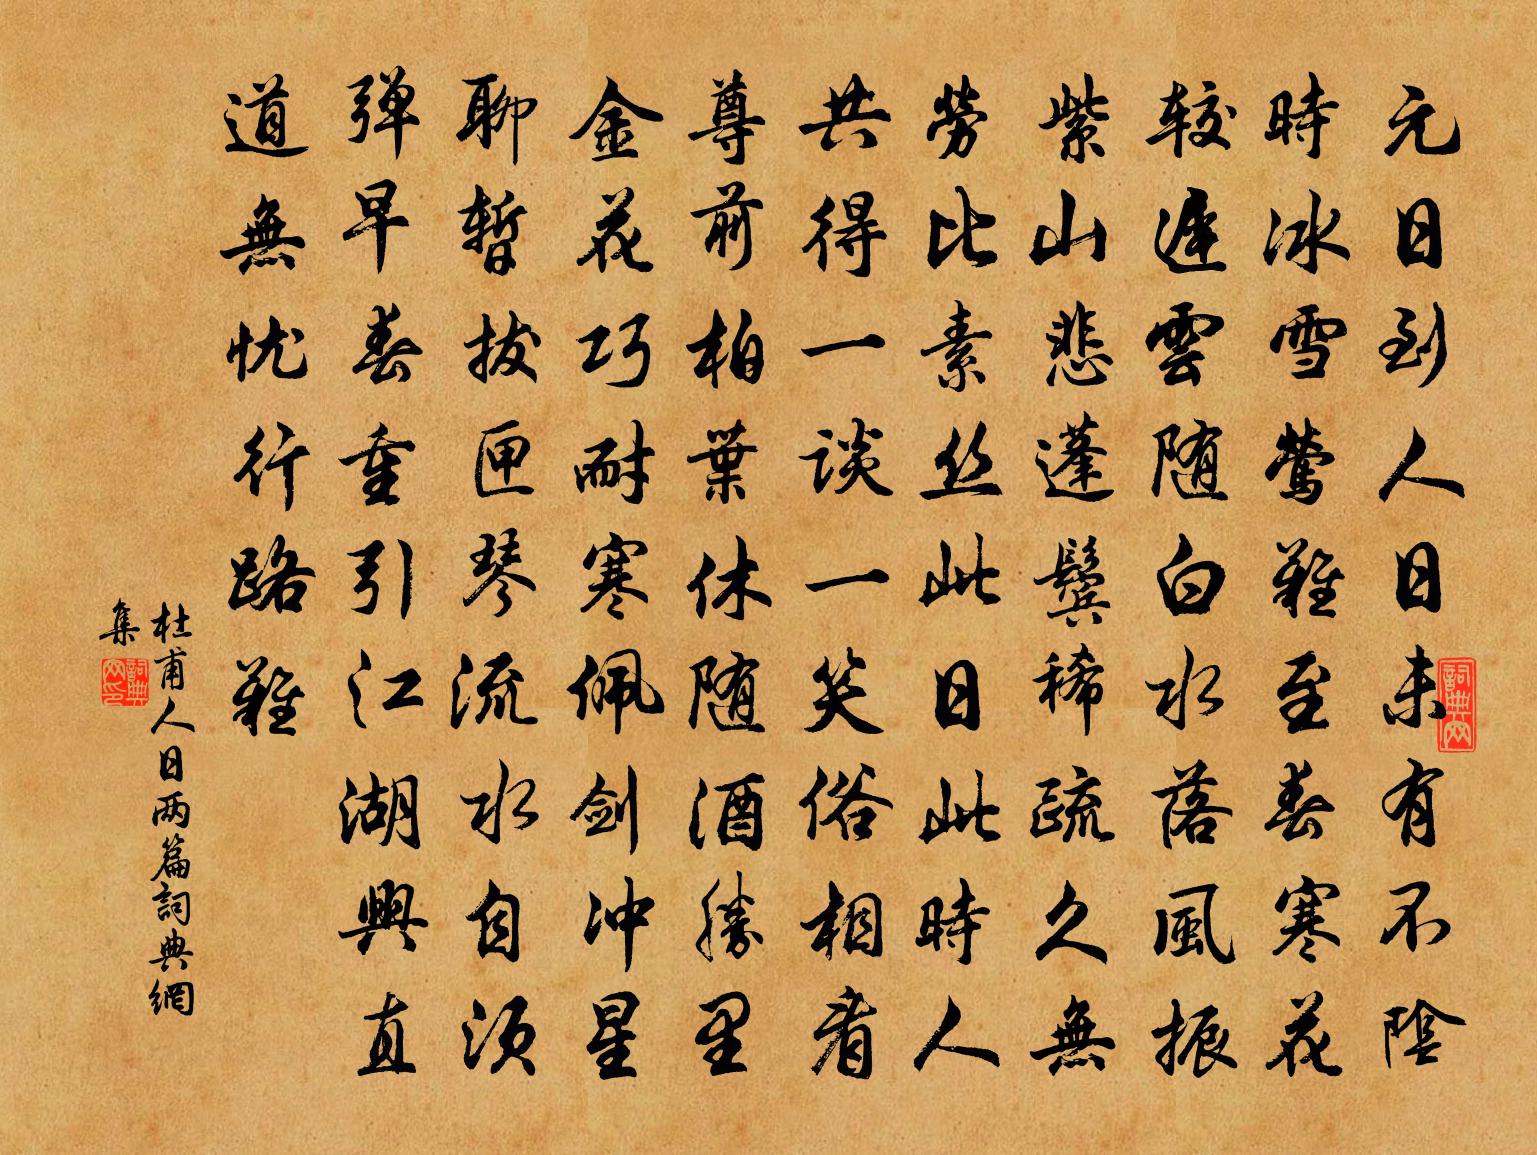 元日到人日未有不陰
時冰雪鶯難至春寒花
较遲雲随白水落風振
紫山悲蓬鬓稀疏久無
勞比素丝此日此時人
共得一谈一笑俗相看
尊前柏葉休随酒勝里
金花巧耐寒佩剑冲星
聊暫拔匣琴流水自须
弹早春重引江湖興直
道無忧行路難
杜甫人日两篇詞典網
集
詞典网
詞典网印